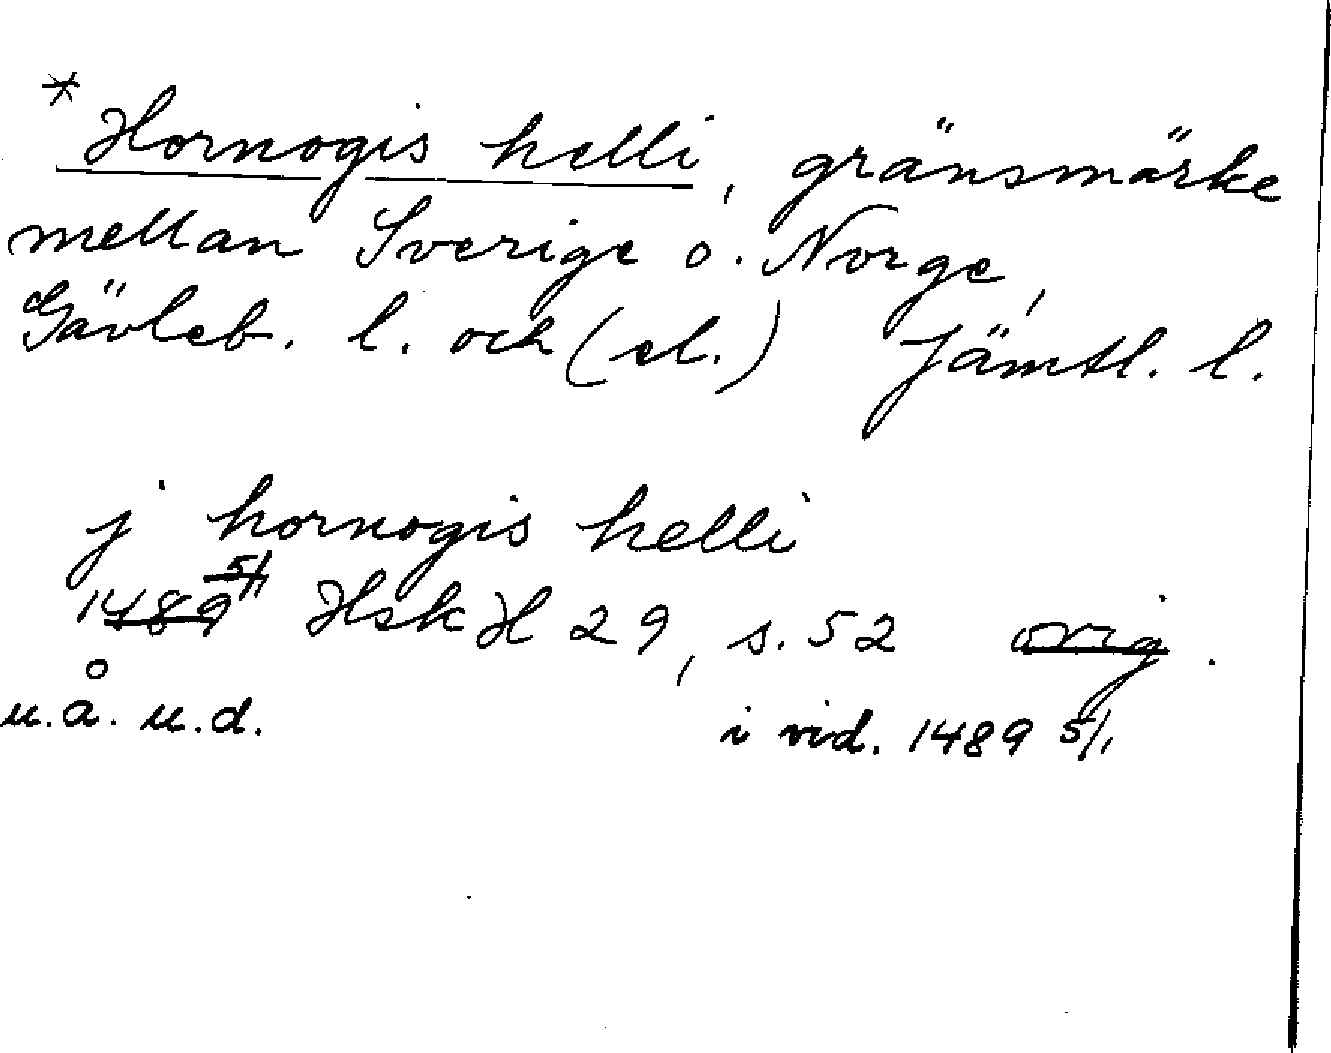 * Hornogis helli, gränsmärke
mellan Sverige o. Norge,
Gävleb. l. och (el.) Jämtl. l.
j hornogis helli
1489 5/1 Hsk H 29, s. 52 orig.
u.å. u.d. i vid. 1489 5/1